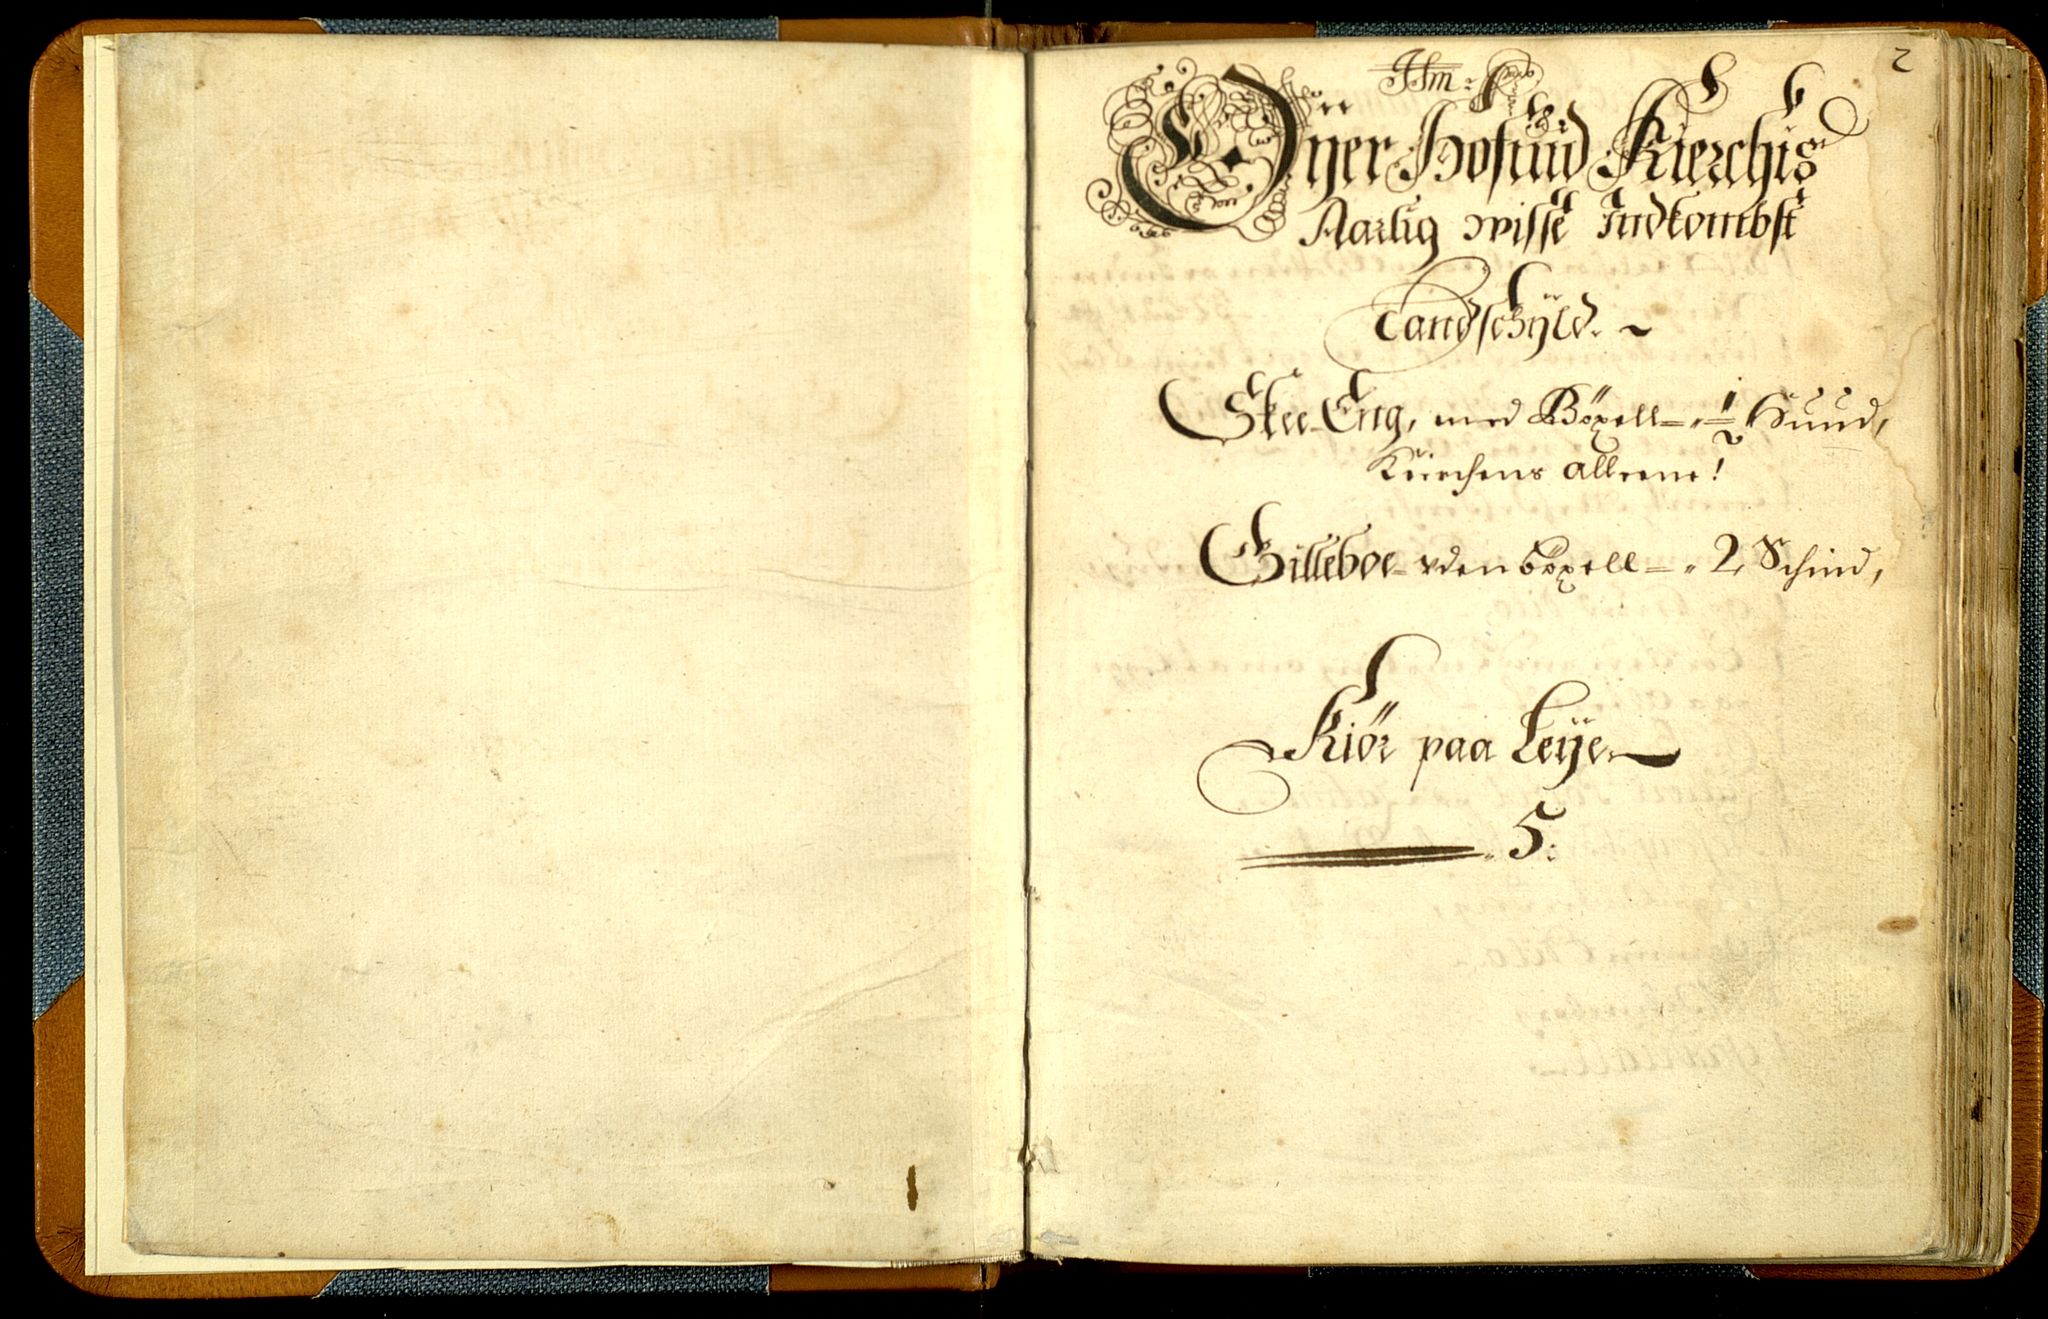 2
Öÿer Hofuid Kierchis
Aarlig wisse Indkombst
Landschÿld.
Skee-Eng, med Böxell - 1/2 Huud,
Kierchens alleene!
Gilleboe - vden böxell - 2 Schind,
Kiör paa Leÿe
5: